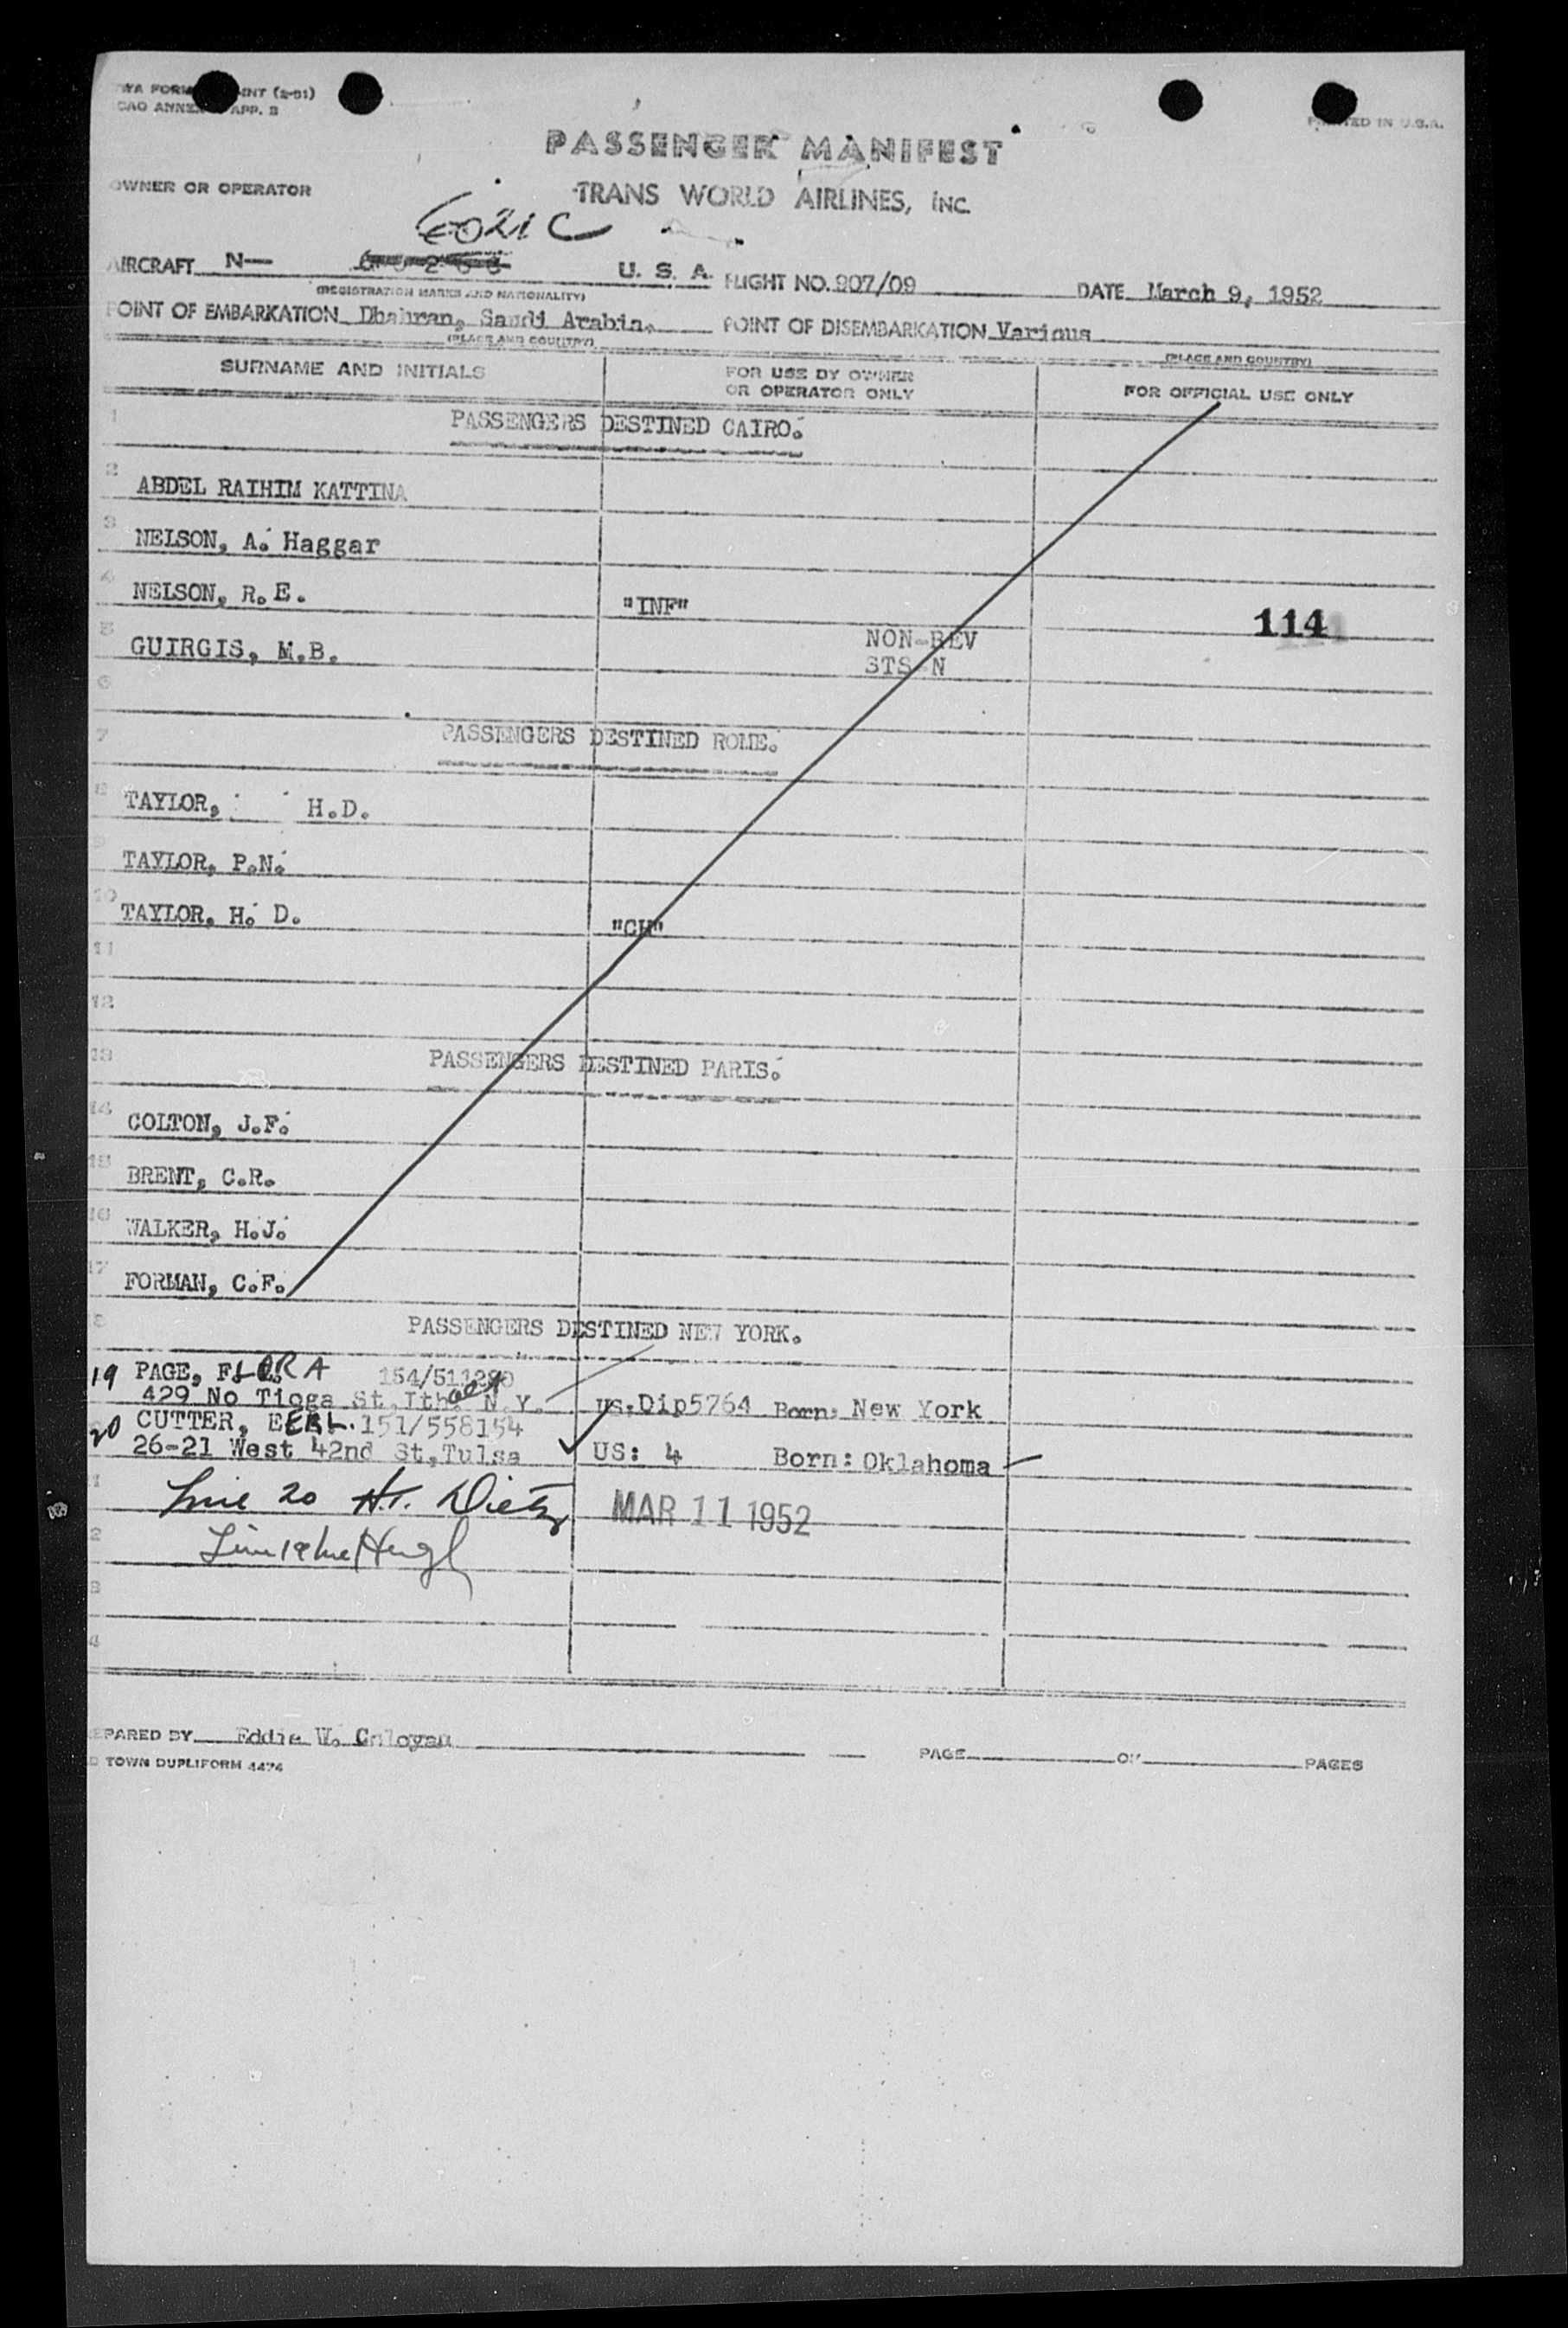 TWA FORM INT (2-51)
ICAO ANNEX APP. 3
PRINTED IN U.S.A.
PASSENGER MANIFEST
OWNER OR OPERATOR TRANS WORLD AIRLINES, INC.
6021C
AIRCRAFT N— U. S. A. FLIGHT NO. 907/09 DATE March 9, 1952
(REGISTRATION MARKS AND NATIONALITY)
POINT OF EMBARKATION Dhahran, Saudi Arabia. POINT OF DISEMBARKATION Various
(PLACE AND COUNTRY) (PLACE AND COUNTRY)
SURNAME AND INITIALS FOR USE BY OWNER OR OPERATOR ONLY FOR OFFICIAL USE ONLY
1 PASSENGERS DESTINED CAIRO.
2 ABDEL RAIHIM KATTINA
3 NELSON, A. Haggar
4 NELSON, R.E. "INF"
114
5 GUIRGIS, M.B. NON-REV
STS-N
6
7 PASSENGERS DESTINED ROME.
8 TAYLOR, H.D.
9 TAYLOR, P.N.
10 TAYLOR, H. D. "CH"
11
12
13 PASSENGERS DESTINED PARIS.
14 COLTON, J.F.
15 BRENT, C.R.
16 WALKER, H.J.
17 FORMAN, C.F.
8 PASSENGERS DESTINED NEW YORK.
19 PAGE, FLORA 154/511280
429 No Tioga St, Ithaca N.Y. US: Dip5764 Born: New York
20 CUTTER, EERL. 151/558154
26-21 West 42nd St, Tulsa US: 4 Born: Oklahoma
1 Line 20 H.T. Dietz MAR 11 1952
2 Line 19
3
4
PREPARED BY Eddie W. PAGE OF PAGES
D TOWN DUPLIFORM 4474